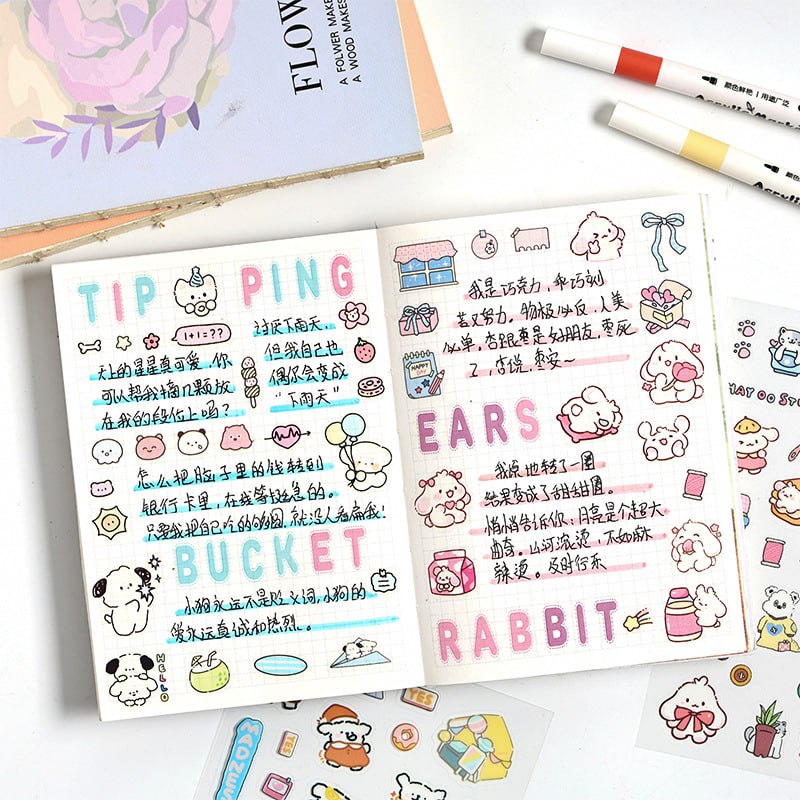 FLOW
A FOLWER MAKE
A WOOD MAKES
颜色鲜艳 | 用途广泛
TIP PING
1+1=??
天上的星星真可爱,你
可以帮我摘几颗放
在我的段位上吗?
讨厌下雨天,
但我自己也
偶尔会变成
“下雨天”
怎么把脑子里的钱转到
银行卡里,在线等挺急的。
只要我把自己吃的够圆,就没人看扁我!
BUCKET
小狗永远不是贬义词,小狗的
爱永远真诚和热烈。
HELLO
我是巧克力,乖巧刻
苦又努力。物极必反,人美
必单。杏跟枣是好朋友,枣死
了,杏说,枣安~
HAPPY
EARS
我原地转了一圈
结果变成了甜甜圈。
悄悄告诉你:月亮是个超大
曲奇。山河滚烫,不如麻
辣烫。及时行乐
RABBIT
YES
YES